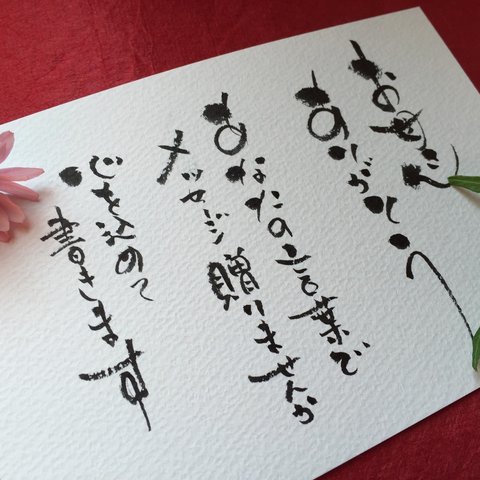 お母さん
ありがとう
あなたの言葉で
メッセージ贈りませんか
心を込めて
書きます